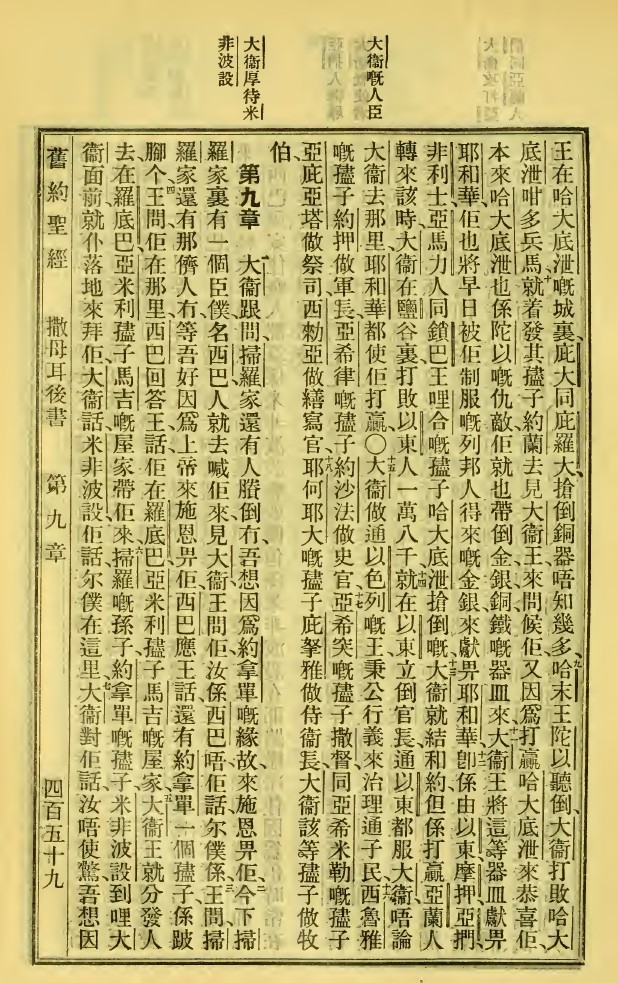 大衞嘅人臣
大衞厚待米
非波設
王在哈大底泄嘅城裏、庇大同庇羅大、搶倒銅器唔知幾多、九哈末王陀以聽倒、大衞打敗哈大
底泄咁多兵馬、十就着發其孻子約蘭去見大衞王、來問候佢、又因爲打贏哈大底泄來恭喜佢、
本來哈大底泄也係陀以嘅仇敵、佢就也帶倒金銀銅鐵嘅器皿來、十一大衞王將這等器皿獻畀
耶和華、佢也將早日被佢制服嘅列邦人、得來嘅金銀來獻畀耶和華、十二卽係由以東、摩押、亞捫、
非利士、亞馬力人、同鎖巴王哩合嘅孻子哈大底泄搶倒嘅、十三大衞就結和約、但係打贏亞蘭人
轉來該時、大衞在鹽谷裏打敗以東人一萬八千、十四就在以東立倒官長、通以東都服大衞、唔論
大衞去那里、耶和華都使佢打贏、〇十五大衞做通以色列嘅王、秉公行義來治理通子民、十六西魯雅
嘅孻子約押做軍長、亞希律嘅孻子約沙法做史官、十七亞希突嘅孻子撒督、同亞希米勒嘅孻子
亞庇亞塔做祭司、西勑亞做繕寫官、十八耶何耶大嘅孻子庇拏雅做侍衞長、大衞該等孻子做牧
伯、
第九章 一大衞跟問、掃羅家還有人賸倒冇、吾想因爲約拿單嘅緣故、來施恩畀佢、二今下掃
羅家裏有一個臣僕、名西巴、人就去喊佢來見大衞、王問佢、汝係西巴唔、佢話、尔僕係、三王問、掃
羅家還有那儕人冇、等吾好因爲上帝來施恩畀佢、西巴應王話、還有約拿單一個孻子、係跛
腳个、四王問佢在那里、西巴回答王話、佢在羅底巴亞米利孻子馬吉嘅屋家、五大衞王就分發人
去、在羅底巴亞米利孻子馬吉嘅屋家帶佢來、六掃羅嘅孫子、約拿單嘅孻子米非波設到哩大
衞面前、就仆落地來拜佢、大衞話、米非波設、佢話、尔僕在這里、七大衞對佢話、汝唔使驚、吾想因
舊約聖經 撒母耳後書 第九章 四百五十九